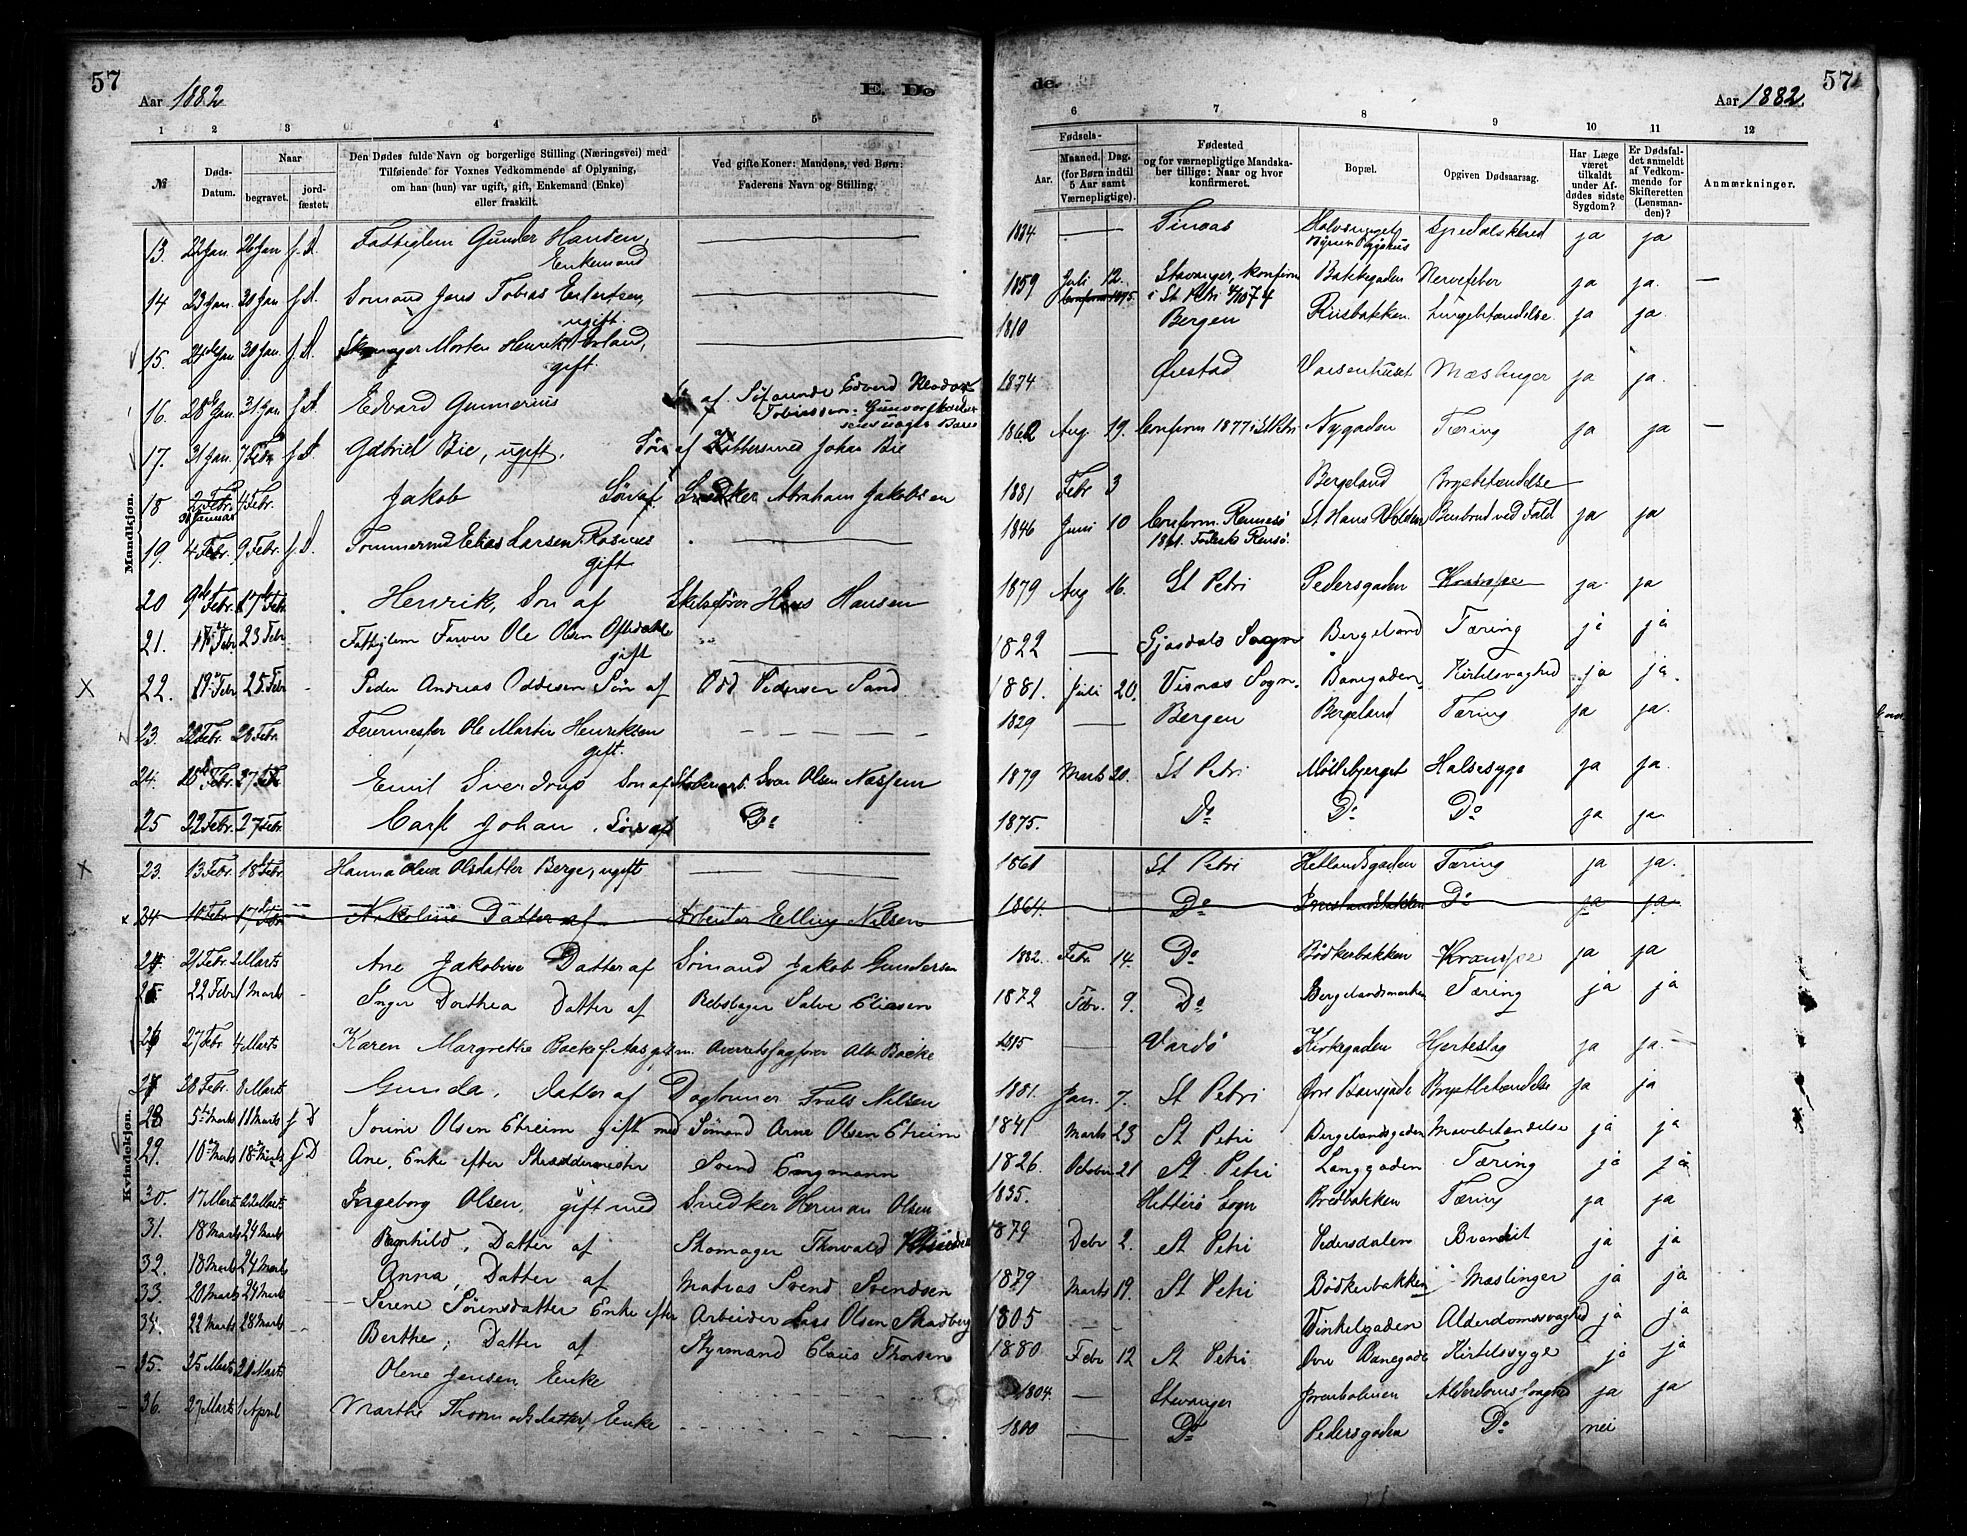 57
Aar 1882
E. Dø
1 2 3 4 5
№
Døds-Datum.
Naar
begravet.
jord-fæstet.
Den Dødes fulde Navn og borgerlige Stilling (Næringsvei) med
Tilføiende for Voxnes Vedkommende af Oplysning,
om han (hun) var ugift, gift, Enkemand (Enke)
eller fraskilt.
Ved gifte Koner: Mandens, ved Børn:
Faderens Navn og Stilling.
Mandkjøn.
13. 22 Jan 26 Jan j. d. Fattiglem Gunder Hansen,
Enkemand
14 23 Jan. 28 Jan j. d. Sømand Jens Tobias
ugift.
15. Jan. 30 Jan. j. d. Morten Henrik
gift.
16. 28 Jan. 31 Jan j. d. Edvard Gunnerius af Søfarende Edverd
Tobiassen
17. 31 Jan. 7 Febr j. d. Gabriel Bie, ugift. Søn af Johan Bie
18 2 Febr. 4 Febr. Jakob Søn af Snedker Abraham Jakobsen
30 Januar
19. 4 Febr 9 Febr. j. d. Tømmermd Elias Larsen
gift
20 9de Febr. 17de Febr. Henrik, Søn af Skibsfører Hans Hansen
21. 17 Febr 23 Febr Fattiglem Farver Ole Olsen
gift
22. 19 Febr 25 Febr - Peder Andreas Oddesen Søn af Odd Pedersen Sand
23. 22 Febr. 28 Febr. Feiermester Ole Martin Henriksen
gift.
24. 15de Febr. 27 Febr Emil Sverdrup Søn af Olsen
25 22 Febr. 27 Febr. Carl Johan. Søn af Do
Kvindekjøn.
23. 13 Febr. 18 Febr. Hanna Olena Olsdatter Berge, ugift
24 10 Febr. 17 Febr Nikoline Datter af Arbeider Elling Nilsen
24 21 Febr. 2 Marts Ane Jakobine Datter af Sømand Jakob Gundersen
25 22 Febr 1 Marts - Inger Dorthea Datter af Rebslager Salve Eliasen
26 27 Febr 4 Marts Karen Margrethe Backe f. Aas, gift m. Backe
27 28 Febr. 8 Marts Gunda, Datter af Daglønner Truls Nilsen
28 5te Marts 11 Marts j d Olsen Etreim gift med Sømand Arne Olsen Etreim
29. 10 Marts 18 Marts j d Ane, Enke efter Skræddermester Svend Engmann
30. 17 Marts 22 Marts Ingeborg Olsen, gift med Snedker Herman Olsen
31. 18 Marts 24 Marts Ragnhild, Datter af Skomager Thorvald
32. 18 Marts 24 Marts Anna, Datter af Matros Svend Svendsen
33. 20 Marts 24 Marts Serene Sørensdatter Enke efter Arbeider Lars Olsen
34. 22 Marts 28 Marts Berthe, Datter af Styrmand Claus Thorsen
35. 25 Marts Marts Olene Jensen, Enke
36. 27 Marts 1 April Marthe Enke
de.
57
Aar 1882.
6 7 8 9 10 11 12
Fødsels-
Aar.
Maaned. Dag.
(for Børn indtil
5 Aar samt
Værnepligtige).
Fødested
og for værnepligtige Mandska-
ber tillige: Naar og hvor
konfirmeret.
Bopæl.
Opgiven Dødsaarsag.
Har Læge
været
tilkaldt
under Af-
dødes sidste
Sygdom?
Er Dødsfal-
det anmeldt
af Vedkom-
mende for
Skifteretten
(Lensman-
den)?
Anmærkninger.
1834 — Spedalskhed ja ja
1859 Juli 12. Stavanger, konfirm Bakkegaden Nervefeber ja ja. —
i St Petri
1810 Bergen Lungebetændelse. ja ja.
1874 Vaisenhuset Mæslinger ja ja.
1862 Aug. 19. Confirm 1877 i St Petri Nygaden Tæring ja ja —
1881 Febr 3 Bergeland Brystbetændelse —
1846 Juni 10 Confirm. Rennesø St Hans Benbrud ved Fald ja ja
1861.
1879 Aug 16. St Petri Pedersgaden ja ja
1822 — Gjæsdals Sogn Bergeland Tæring ja ja
1881. Juli 20. Sogn. Banegaden Kirtelsvaghed ja ja.
1829 — Bergen Bergeland Tæring ja ja.
1879 Marts 20. St Petri Møllebjerget Halsesyge ja ja.
1875. Do Do Do ja ja.
1861 St Petri Hetlandsgaden Tæring ja ja.
1864. Do Do ja ja
1882. Febr. 14. Do Bødkerbakken Krampe ja ja
1872 Febr. 9. Do Bergelandsmarken Tæring ja ja
1815 — Vardø Kirkegaden Hjerteslag ja ja.
1881. Jan. 7. St Petri Øvre Banegade Brystbetændelse ja ja
1841 Marts 23 St Petri Bergelandsgaden Mavebetændelse ja ja
1826. October 21 St. Petri Langgaden Tæring ja ja
1835. Hitterø Sogn Bredbakken Tæring ja ja
1879 Decbr 2. St Petri Pedersdalen ja ja
1879 Marts 19. St Petri Bødkerbakken Mæslinger ja ja
1805 — Vinkelgaden Alderdomssvaghed ja ja
1880 Febr 12 St Petri Øvre Banegade Kirtelsyge ja ja
1804. — Stavanger Alderdomssvaghed ja ja
1800 — Do Pedersgaden Do nei